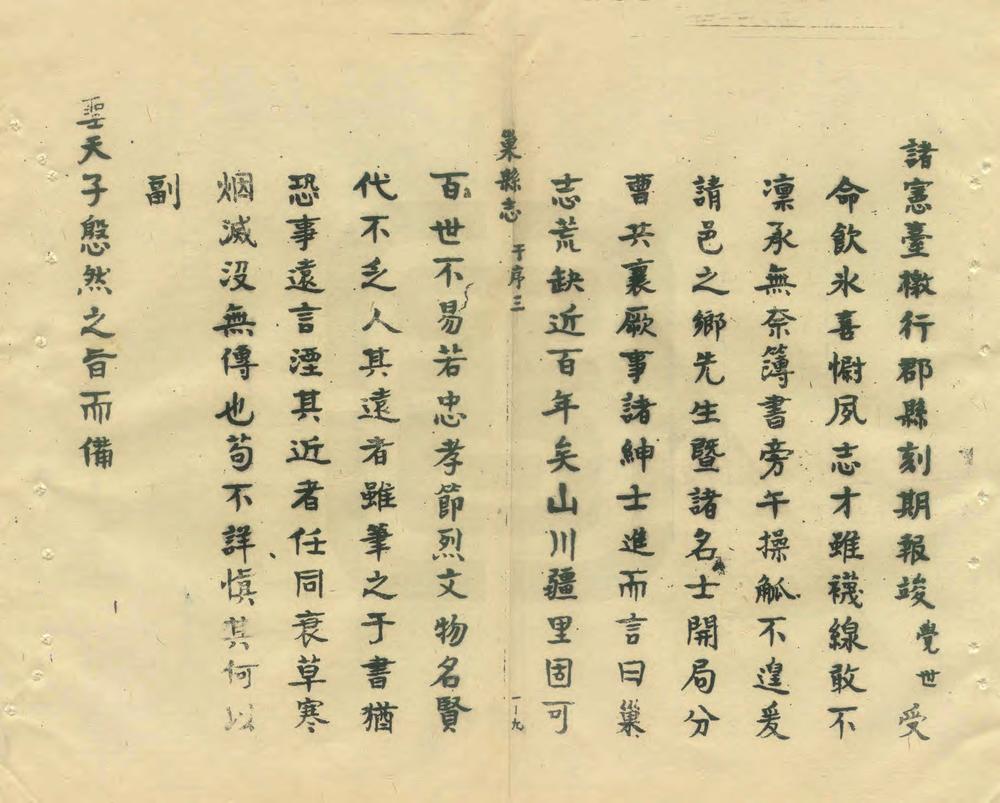 諸憲臺檄行郡縣刻期報竣覺世受
命飲氷喜懰夙志才雖襪線敢不
凜承無奈簿書旁午操觚不遑爰
請邑之鄉先生暨諸名士開局分
曹共襄厥事諸紳士進而言曰巢
志荒缺近百年矣山川疆里固可
巢縣志 于序三 一一九
百世不易若忠孝節烈文物名賢
代不乏人其遠者雖筆之于書猶
恐事遠言湮其近者任同衰草寒
烟滅沒無傳也苟不詳慎其何以
副
聖天子慇然之旨而備